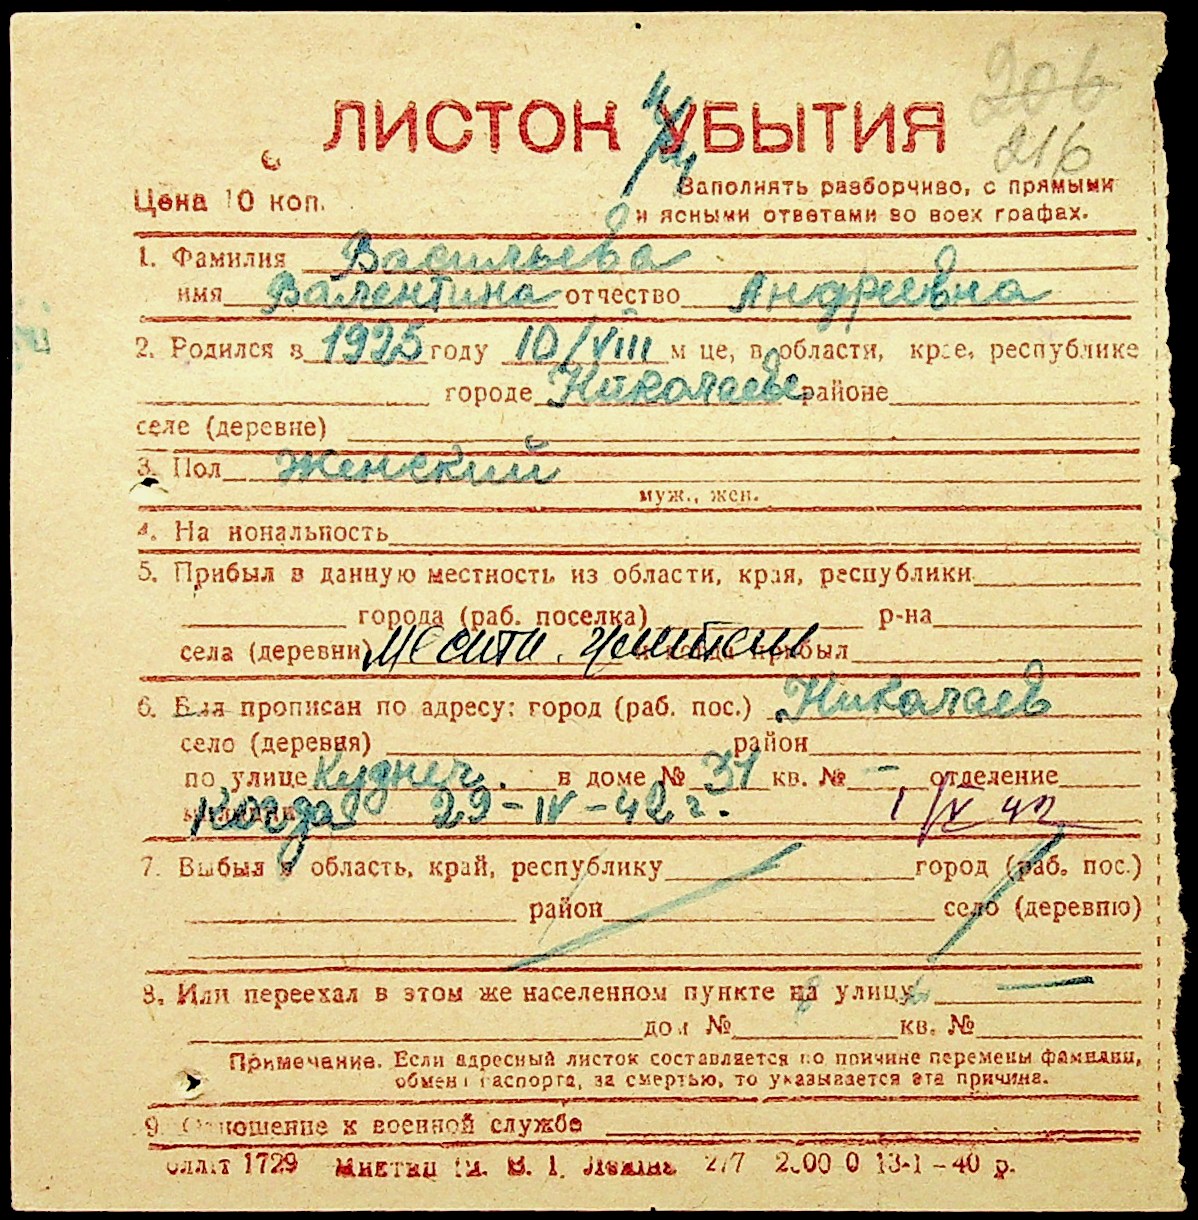 206
216
ЛИСТОК УБЫТИЯ
Цена 10 коп.
Заполнять разборчиво, с прямыми
и ясными ответами во всех графах.
1. Фамилия Васильева
имя Валентина отчество Андреевна
2. Родился в 1925 году 10/VIII м-це, в области, крае, республике
городе Николаеве районе
селе (деревне)
3. Пол женский
муж., жен.
4. Национальность
5. Прибыл в данную местность из области, края, республики
города (раб. поселка) р-на
села (деревни) Местн. житель и когда прибыл
6. Был прописан по адресу: город (раб. пос.) Николаев
село (деревня) район
по улице Кузнеч. в доме № 31 кв. № — отделение
милиции Когда 29-IV-42 г. 1/V 42
7. Выбыл в область, край, республику город (раб. пос.)
район село (деревню)
8. Или переехал в этом же населенном пункте на улицу —
дом № кв. №
Примечание. Если адресный листок составляется по причине перемены фамилии,
обмена паспорта, за смертью, то указывается эта причина.
9. Отношение к военной службе
1729 В. І. Леніна 277 13-1-40 р.